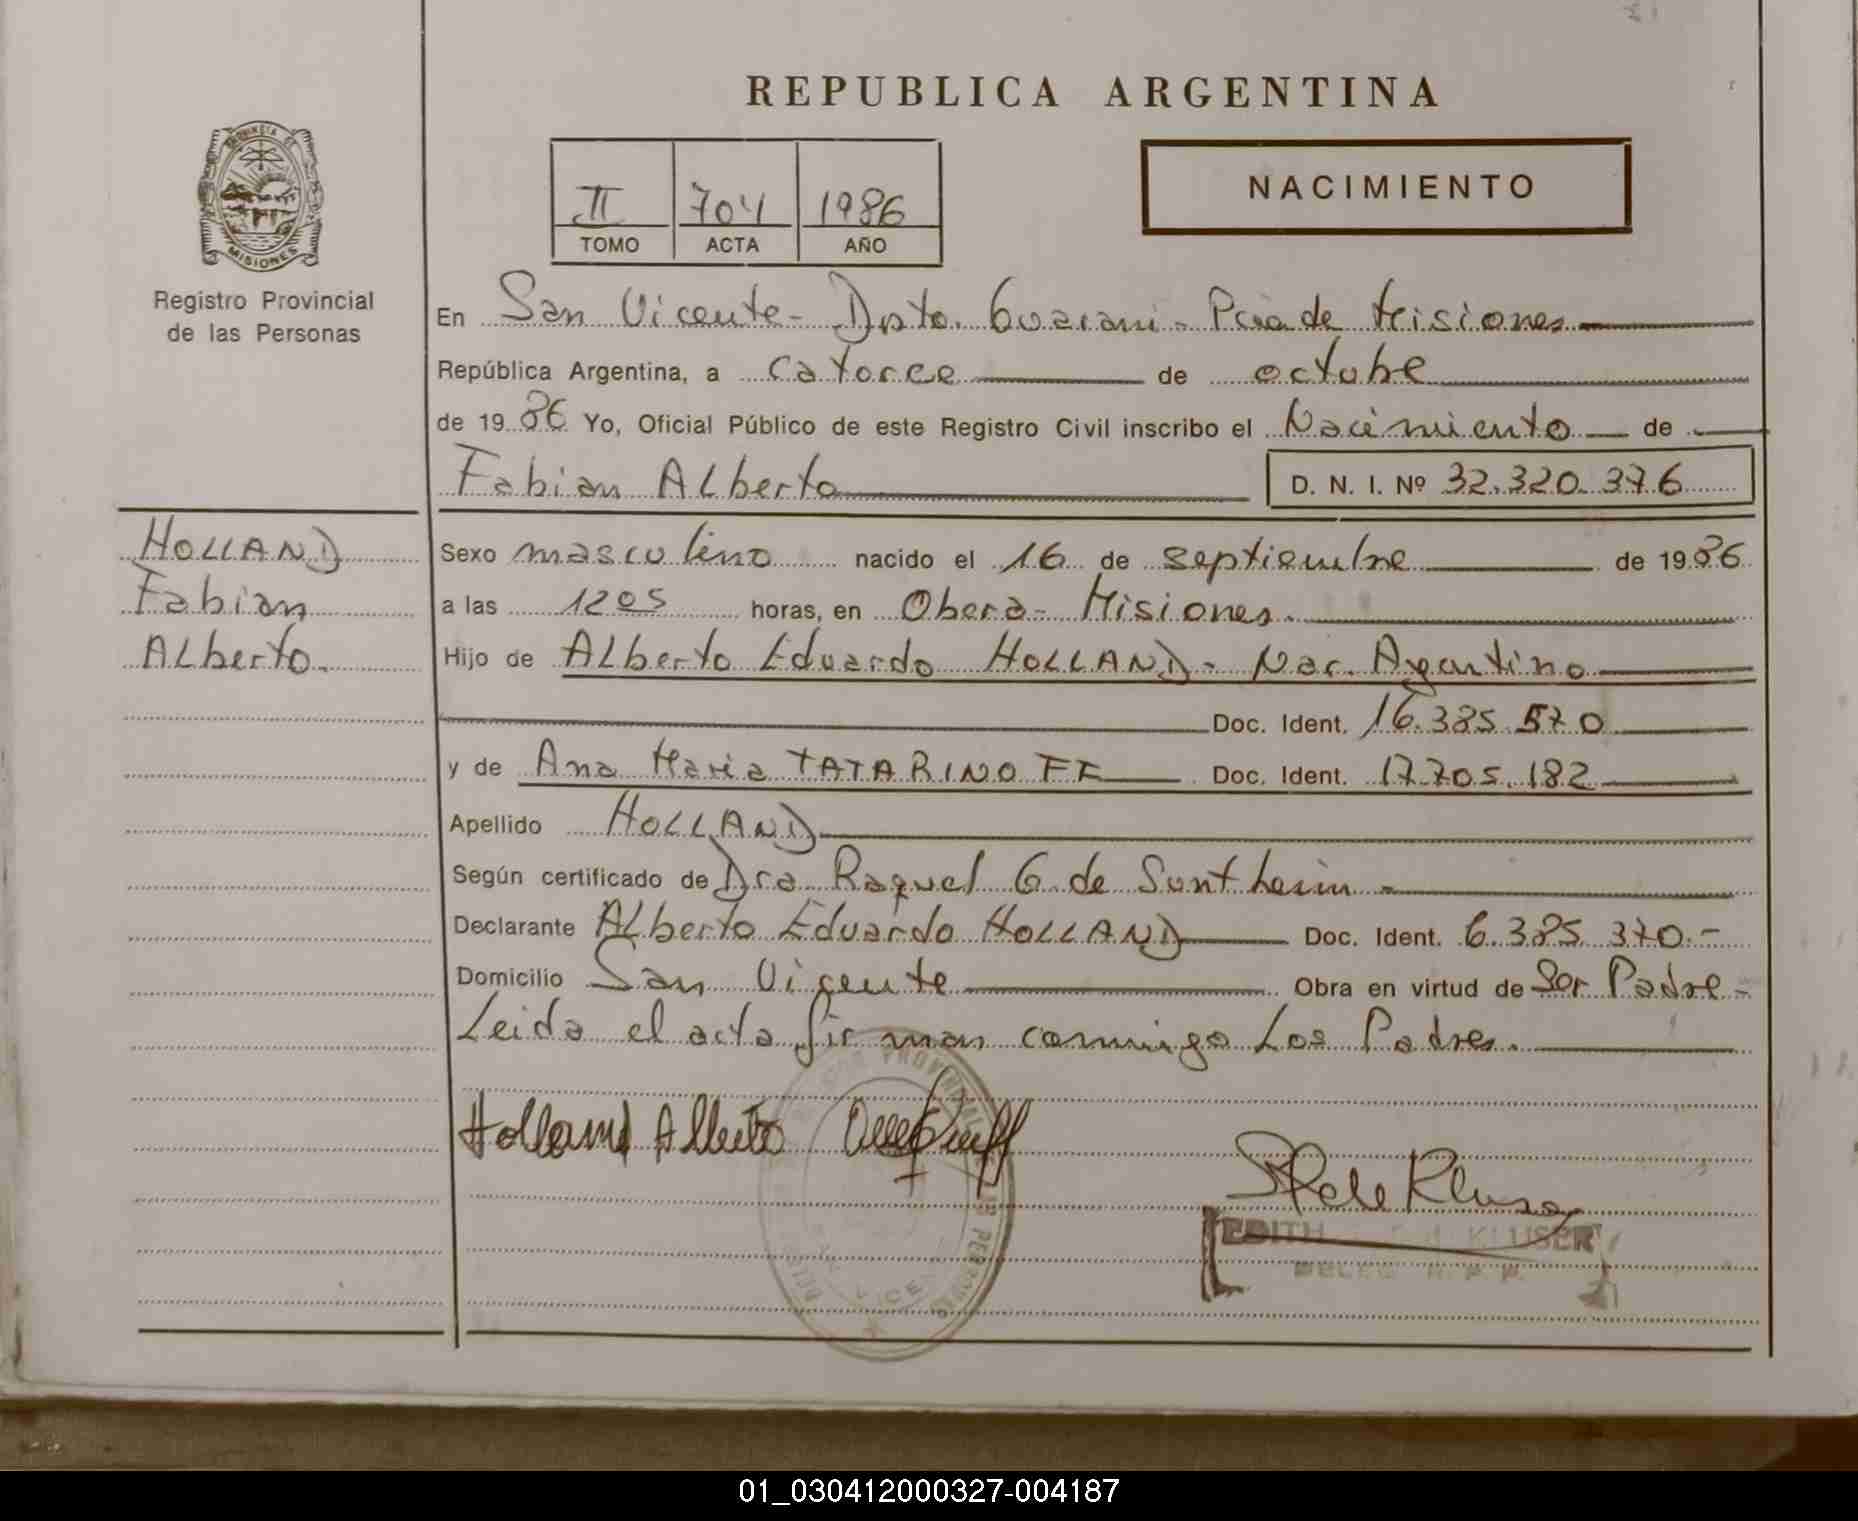 REPUBLICA ARGENTINA
PROVINCIA DE
MISIONES
Registro Provincial
de las Personas
II 704 1986
TOMO ACTA AÑO
NACIMIENTO
En San Vicente - Dpto. Guarani - Pcia de Misiones
República Argentina, a catorce de octubre
de 19 86 Yo, Oficial Público de este Registro Civil inscribo el Nacimiento de
Fabian Alberto D. N. I. Nº 32.320.376
HOLLAND
Fabian
Alberto.
Sexo masculino nacido el 16 de septiembre de 19 86
a las 1205 horas, en Obera - Misiones.
Hijo de Alberto Eduardo HOLLAND - Nac. Argentino
Doc. Ident. 16.385.570
y de Ana Maria TATARINOFF Doc. Ident. 17.705.182
Apellido HOLLAND
Según certificado de Dra Raquel G. de Sontheim -
Declarante Alberto Eduardo HOLLAND Doc. Ident. 6.385.370.-
Domicilio San Vicente Obra en virtud de Ser Padre -
Leida el acta firman conmigo Los Padres.
Holland Alberto
EDITH KLUSER
01_030412000327-004187